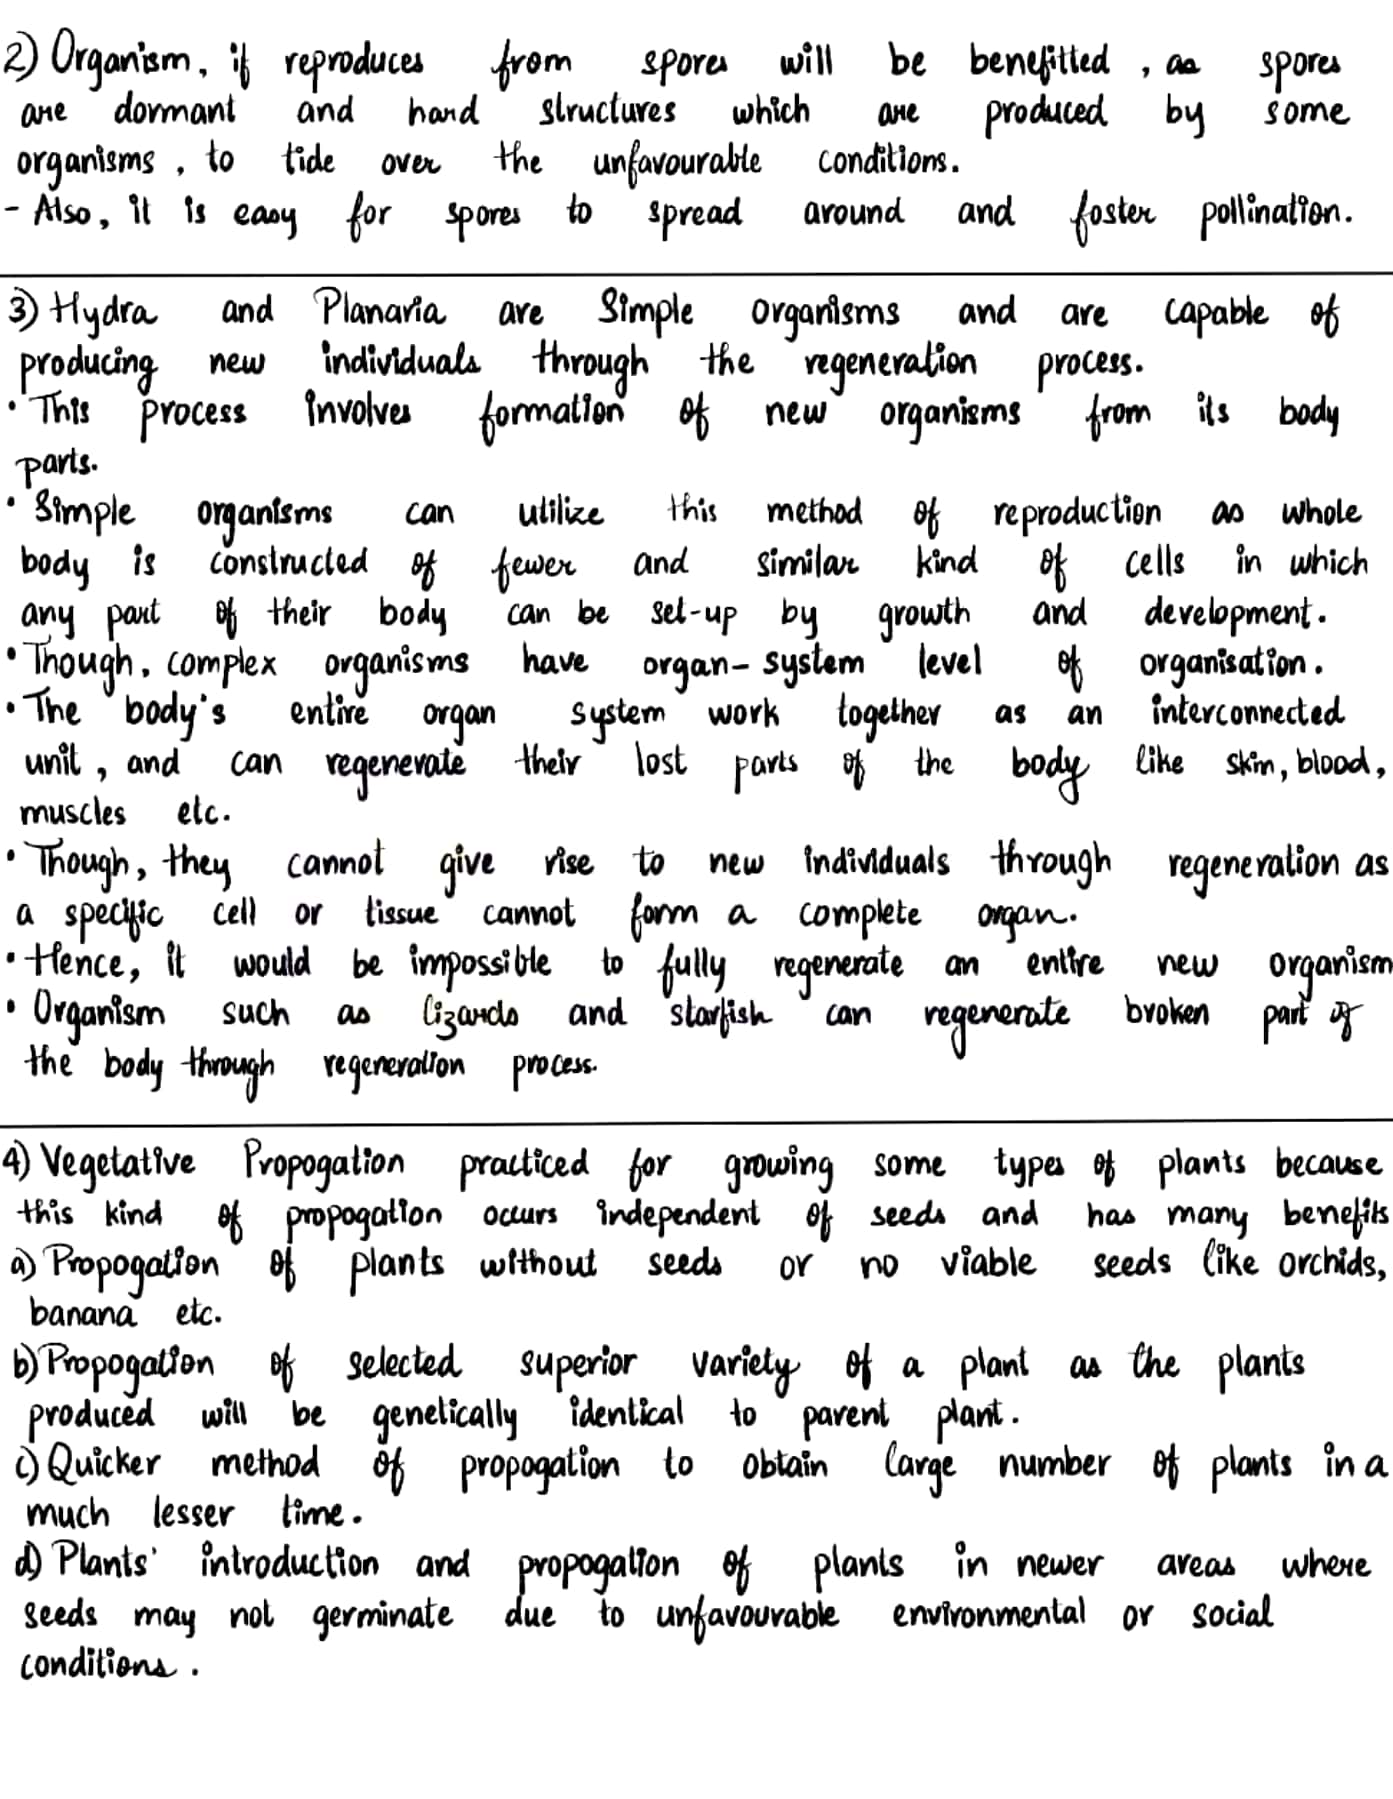 2) Organism, if reproduces from spores will be benefitted, as spores
are dormant and hard structures which are produced by some
organisms, to tide over the unfavourable conditions.
- Also, it is easy for spores to spread around and foster pollination.
3) Hydra and Planaria are Simple organisms and are capable of
producing new individuals through the regeneration process.
• This process involves formation of new organisms from its body
parts.
• Simple organisms can utilize this method of reproduction as whole
body is constructed of fewer and similar kind of cells in which
any part of their body can be set-up by growth and development.
• Though, complex organisms have organ-system level of organisation.
• The body's entire organ system work together as an interconnected
unit, and can regenerate their lost parts of the body like skin, blood,
muscles etc.
• Though, they cannot give rise to new individuals through regeneration as
a specific cell or tissue cannot form a complete organ.
• Hence, it would be impossible to fully regenerate an entire new organism
• Organism such as lizards and starfish can regenerate broken part of
the body through regeneration process.
4) Vegetative Propogation practiced for growing some types of plants because
this kind of propogation occurs independent of seeds and has many benefits
a) Propogation of plants without seeds or no viable seeds like orchids,
banana etc.
b) Propogation of selected superior variety of a plant as the plants
produced will be genetically identical to parent plant.
c) Quicker method of propogation to obtain large number of plants in a
much lesser time.
d) Plants' introduction and propogation of plants in newer areas where
seeds may not germinate due to unfavourable environmental or social
conditions.